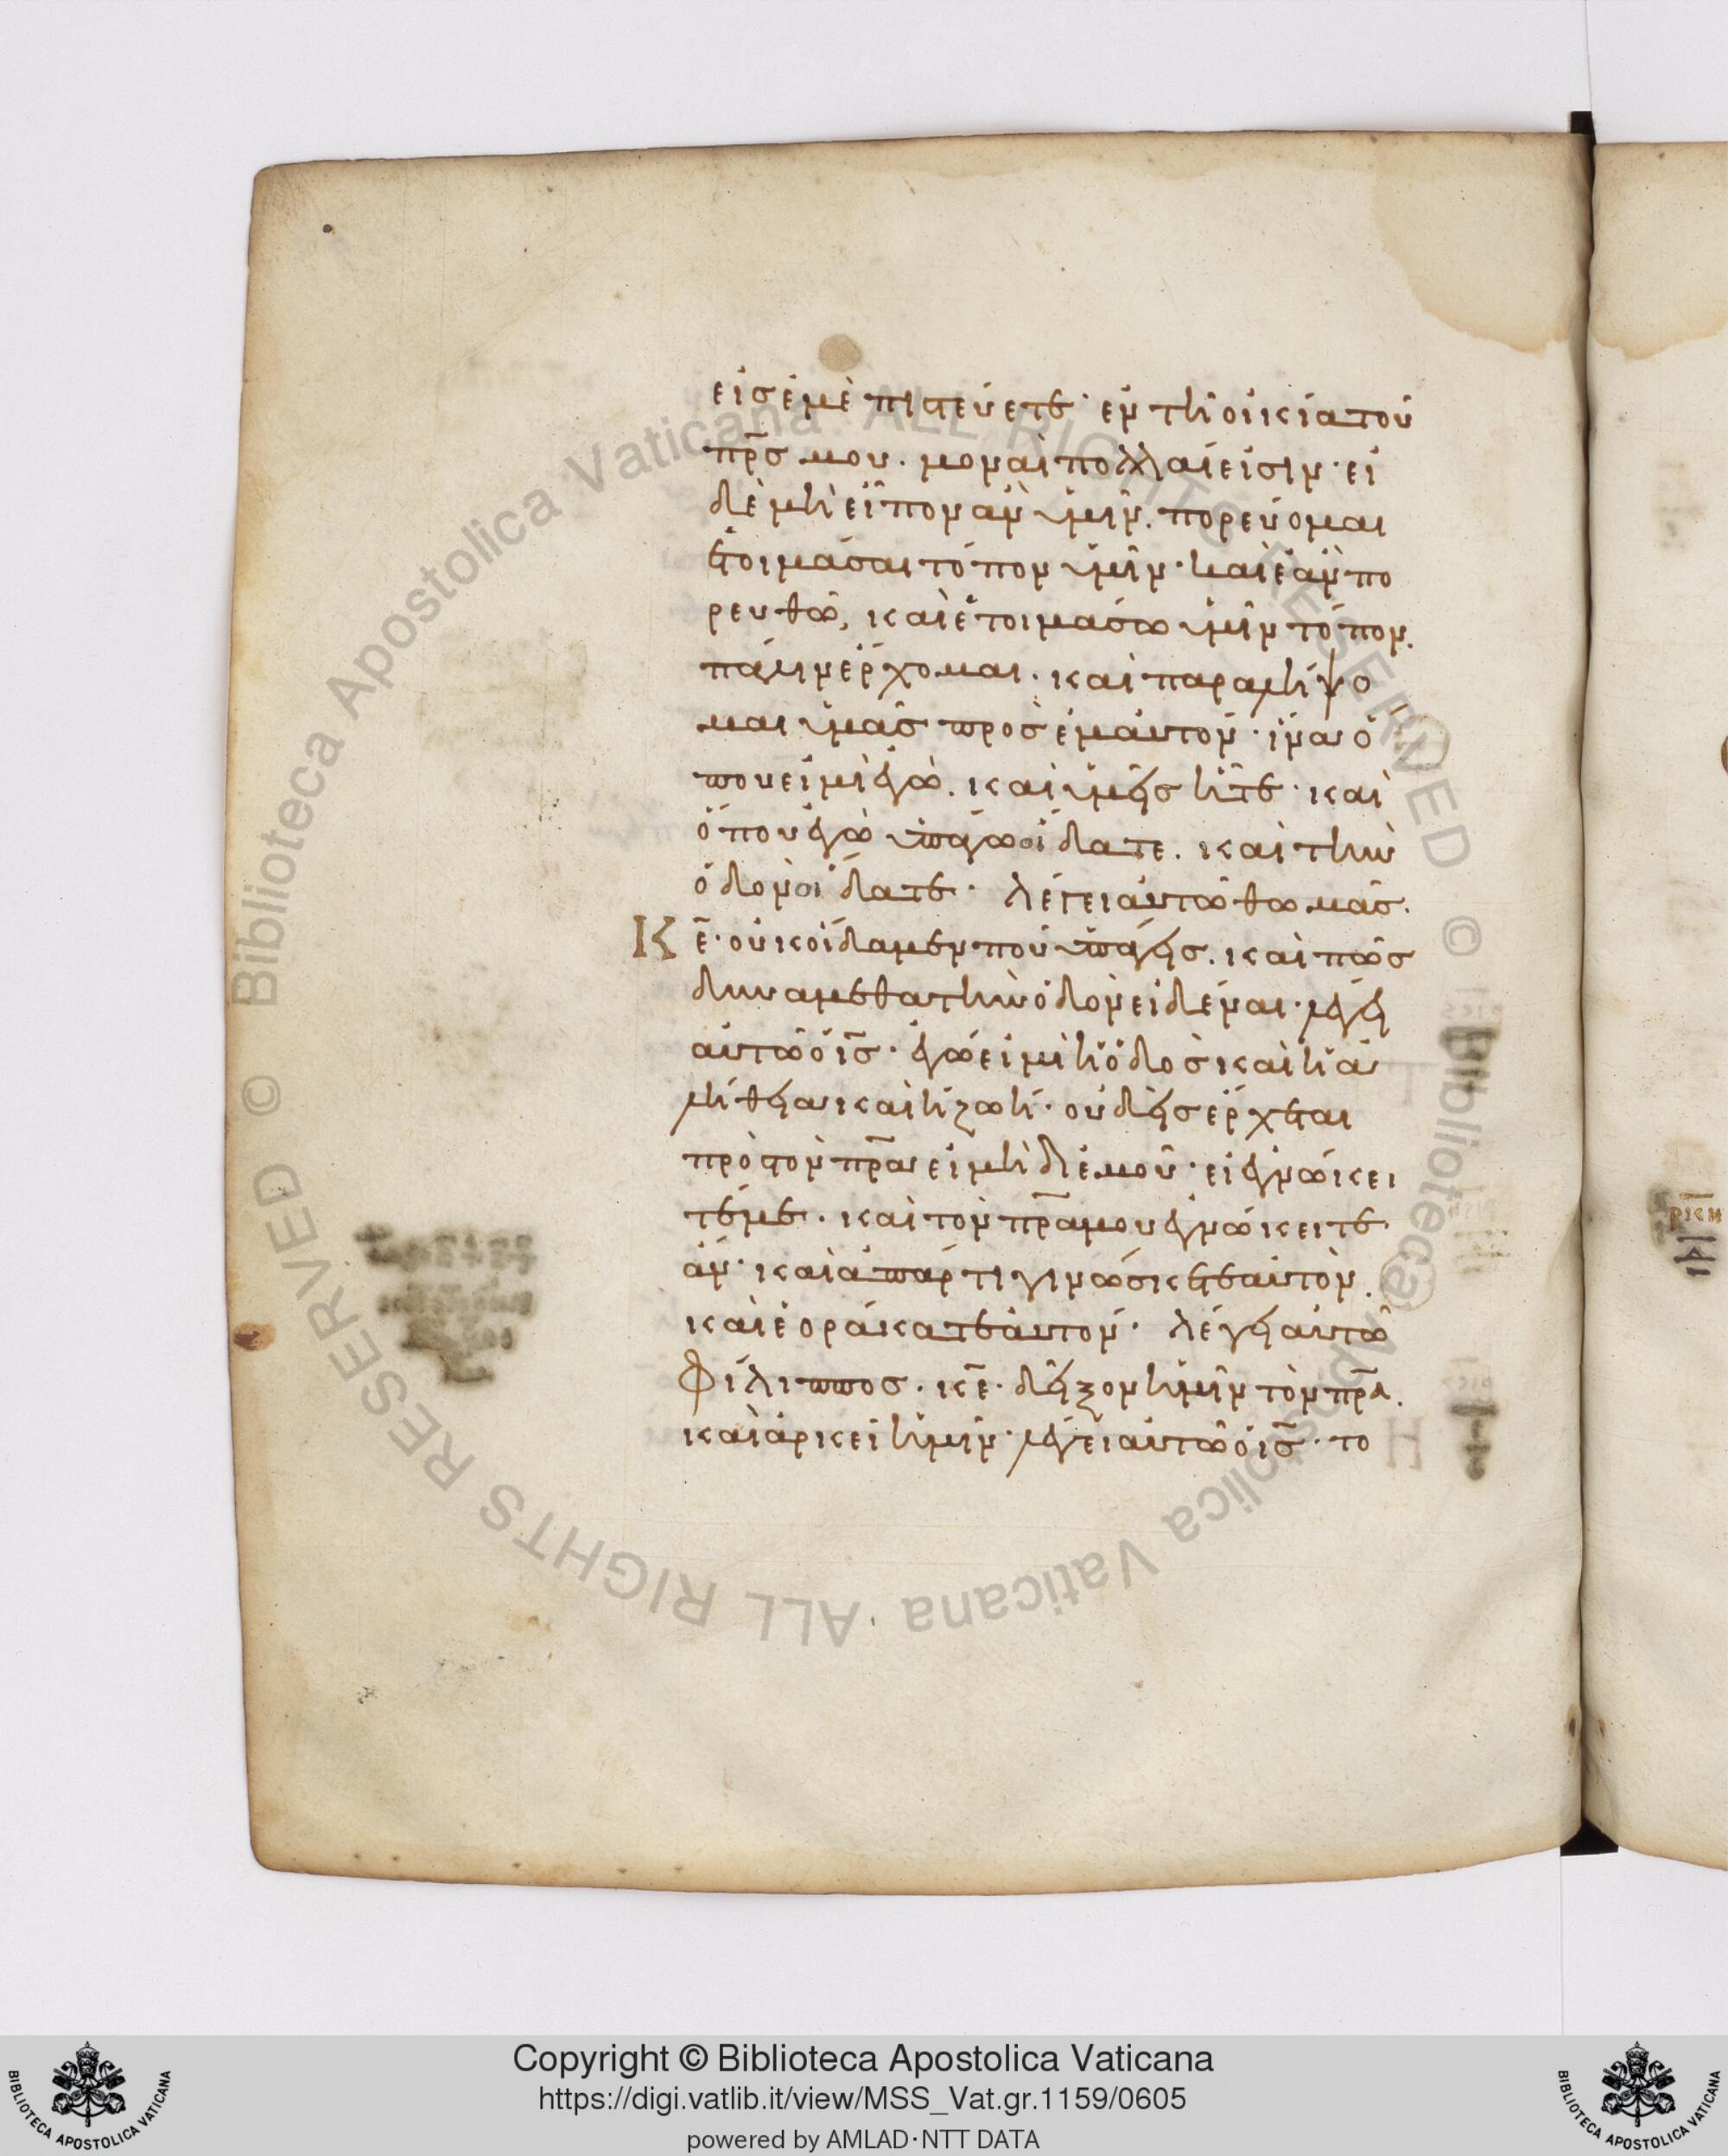 εἰς ἐμὲ πιστεύετε· ἐν τῆ οἰκία τοῦ
πρ̅ς μου. μοναὶ πολλαί εἰσιν· εἰ
δὲ μὴ εἶπον ἂν ὑμῖν. πορεύομαι
ἑτοιμάσαι τόπον ὑμῖν· καὶ ἐὰν πο
ρευθῶ, καὶ ἑτοιμάσω ὑμῖν τόπον.
πάλιν ἔρχομαι. καὶ παραλήψο
μαι ὑμᾶς πρὸς ἐμαυτόν· ἵνα ὅ
που εἰμὶ ἐγὼ. καὶ ὑμεῖς ἦτε· καὶ
ὅπου ἐγὼ ὑπάγω οἴδατε. καὶ τὴν
ὁδὸν οἴδατε· λέγει αὐτῶ θωμᾶς.
Κε̅· οὐκ οἴδαμεν ποῦ ὑπάγεις. καὶ πῶς
δυναμεθα τὴν ὁδὸν εἰδέναι· λέγει
αὐτῶ ὁ ις̅· ἐγώ εἰμι ἡ ὁδὸς καὶ ἡ ἀ
λήθεια καὶ ἡ ζωή· οὐδεὶς ἔρχεται
πρὸς τὸν πρ̅α εἰ μὴ δι' ἐμοῦ· εἰ ἐγνώκει
τέ με. καὶ τὸν πρ̅α μου ἐγνώκειτε
ἄν· καὶ ἀπάρτι γινώσκετε αὐτὸν.
καὶ ἑοράκατε αὐτόν· λέγει αὐτῶ
Φίλιππος. κε̅· δεῖξον ἡμῖν τὸν πρ̅α.
καὶ ἀρκεῖ ἡμῖν· λέγει αὐτῶ ὁ ις̅· το
Copyright © Biblioteca Apostolica Vaticana
https://digi.vatlib.it/view/MSS_Vat.gr.1159/0605
powered by AMLAD·NTT DATA
BIBLIOTECA APOSTOLICA VATICANA
BIBLIOTECA APOSTOLICA VATICANA
© Biblioteca Apostolica Vaticana ALL RIGHTS RESERVED
© Biblioteca Apostolica Vaticana ALL RIGHTS RESERVED